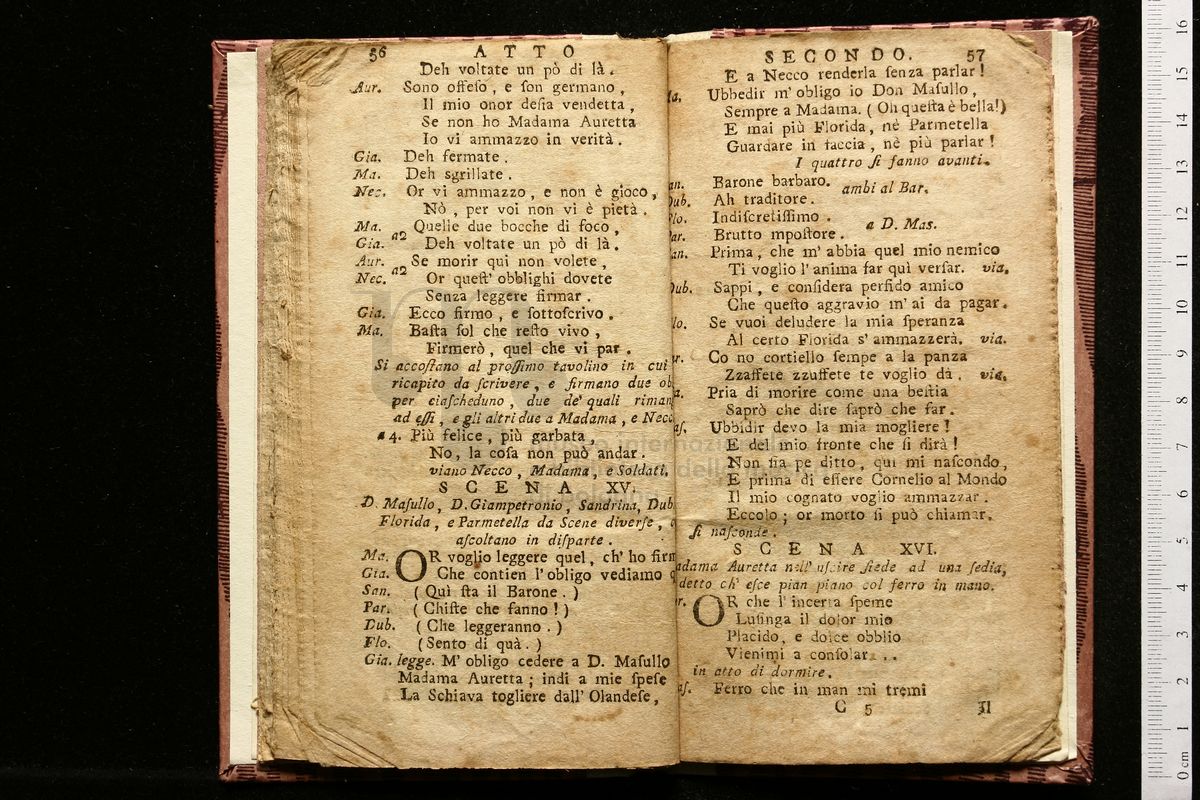 56 ATTO
Deh voltate un pò di là.
Aur. Sono offeſo, e ſon germano,
Il mio onor deſia vendetta,
Se non ho Madama Auretta
Io vi ammazzo in verità.
Gia. Deh fermate.
Ma. Deh sgrillate.
Nec. Or vi ammazzo, e non è gioco,
Nò, per voi non vi è pietà.
Ma. Quelle due bocche di foco,
Gia. a2 Deh voltate un pò di là.
Aur. Se morir qui non volete,
Nec. a2 Or queſt' obblighi dovete
Senza leggere firmar.
Gia. Ecco firmo, e ſottoſcrivo.
Ma. Baſta ſol che reſto vivo,
Firmerò, quel che vi par.
Si accoſtano al proſſimo tavolino in cui
ricapito da ſcrivere, e firmano due ob
per ciaſcheduno, due de' quali riman
ad eſſi, e gli altri due a Madama, e Necc
a 4. Più felice, più garbata,
No, la coſa non può andar.
viano Necco, Madama, e Soldati.
SCENA XV.
D. Maſullo, D. Giampetronio, Sandrina, Dub
Florida, e Parmetella da Scene diverſe,
aſcoltano in diſparte.
Ma. OR voglio leggere quel, ch' ho firm
Gia. Che contien l' obligo vediamo
San. (Quì ſta il Barone.)
Par. (Chiſte che fanno!)
Dub. (Che leggeranno.)
Flo. (Sento di quà.)
Gia. legge. M' obligo cedere a D. Maſullo
Madama Auretta; indi a mie ſpeſe
La Schiava togliere dall' Olandeſe,
SECONDO. 57
E a Necco renderla ſenza parlar!
Ma. Ubbedir m' obligo io Don Maſullo,
Sempre a Madama. (Oh queſta è bella!)
E mai più Florida, nè Parmetella
Guardare in faccia, nè più parlar!
I quattro ſi fanno avanti.
an. Barone barbaro.
ambi al Bar.
Dub. Ah traditore.
Flo. Indiſcretiſſimo.
a D. Mas.
ar. Brutto mpoſtore.
an. Prima, che m' abbia quel mio nemico
Ti voglio l' anima far quì verſar. via.
Dub. Sappi, e conſidera perfido amico
Che queſto aggravio m' ai da pagar.
lo. Se vuoi deludere la mia ſperanza
Al certo Florida s' ammazzerà. via.
r. Co no cortiello ſempe a la panza
Zzaffete zzuffete te voglio dà. via.
a. Pria di morire come una beſtia
Saprò che dire ſaprò che far.
aſ. Ubbidir devo la mia mogliere!
E del mio fronte che ſi dirà!
Non ſia pe ditto, qui mi naſcondo,
E prima di eſſere Cornelio al Mondo
Il mio cognato voglio ammazzar.
Eccolo; or morto ſi può chiamar.
ſi naſconde.
SCENA XVI.
adama Auretta nell' uſcire ſiede ad una ſedia,
detto ch' eſce pian piano col ferro in mano.
r. OR che l' incerta ſpeme
Luſinga il dolor mio
Placido, e dolce obblio
Vienimi a conſolar...
in atto di dormire.
aſ. Ferro che in man mi tremi
C 5 Il